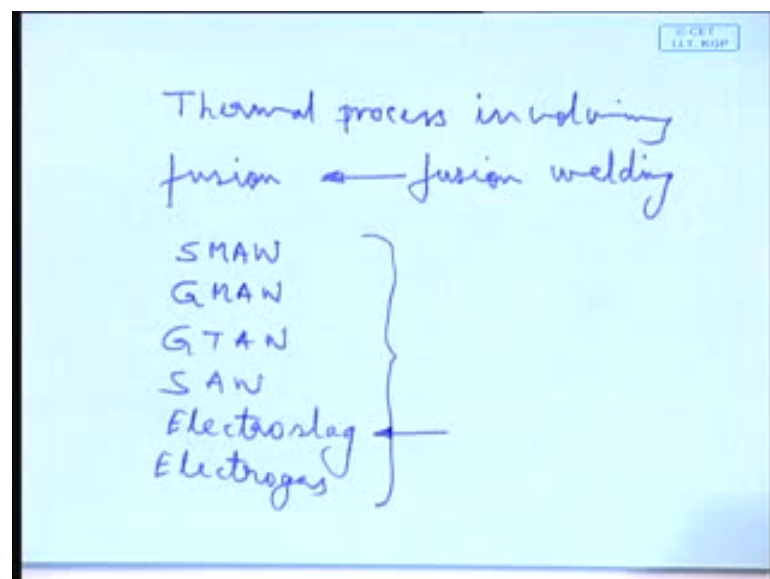 © CET
I.I.T. KGP
Thermal process involving
fusion ← fusion welding
SMAW
GMAW
GTAW
SAW
Electroslag ←
Electrogas